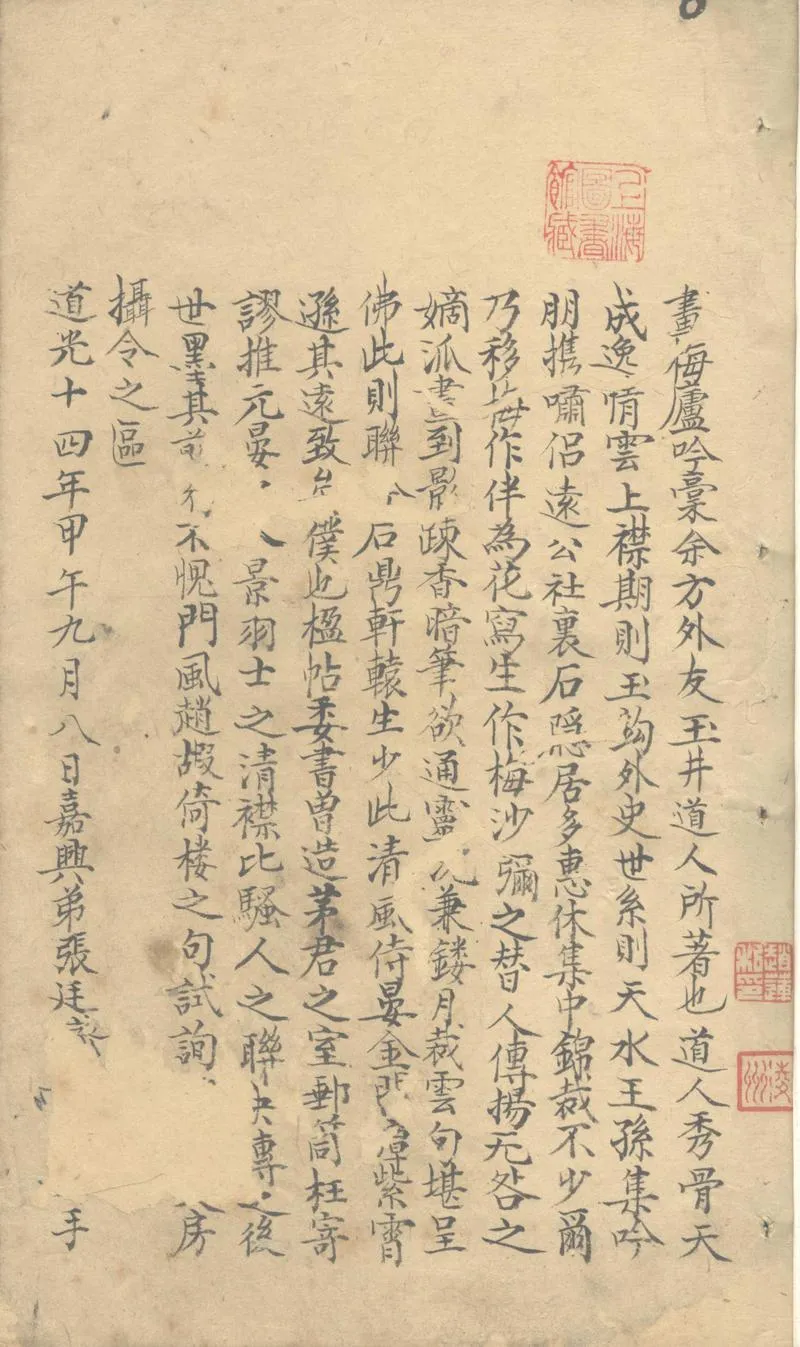 畫梅廬吟稾余方外友玉井道人所著也道人秀骨天
成逸情雲上襟期則玉鈎外史世系則天水王孫集吟
朋攜嘯侶遠公社裏石隱居多惠休集中錦裁不少爾
乃移梅作伴為花寫生作梅沙彌之替人傳揚无咎之
嫡派畫到影疎香暗筆欲通靈兼鏤月裁雲句堪呈
佛此則聯石鼎軒轅生少此清風侍晏金門紫霄
遜其遠致僕也楹帖委書曾造茅君之室郵筒枉寄
謬推元晏景羽士之清襟比騷人之聯專後
世黑其不愧門風趙嘏倚樓之句試詢房
攝令之區
道光十四年甲午九月八日嘉興弟張廷手
上海圖書館藏